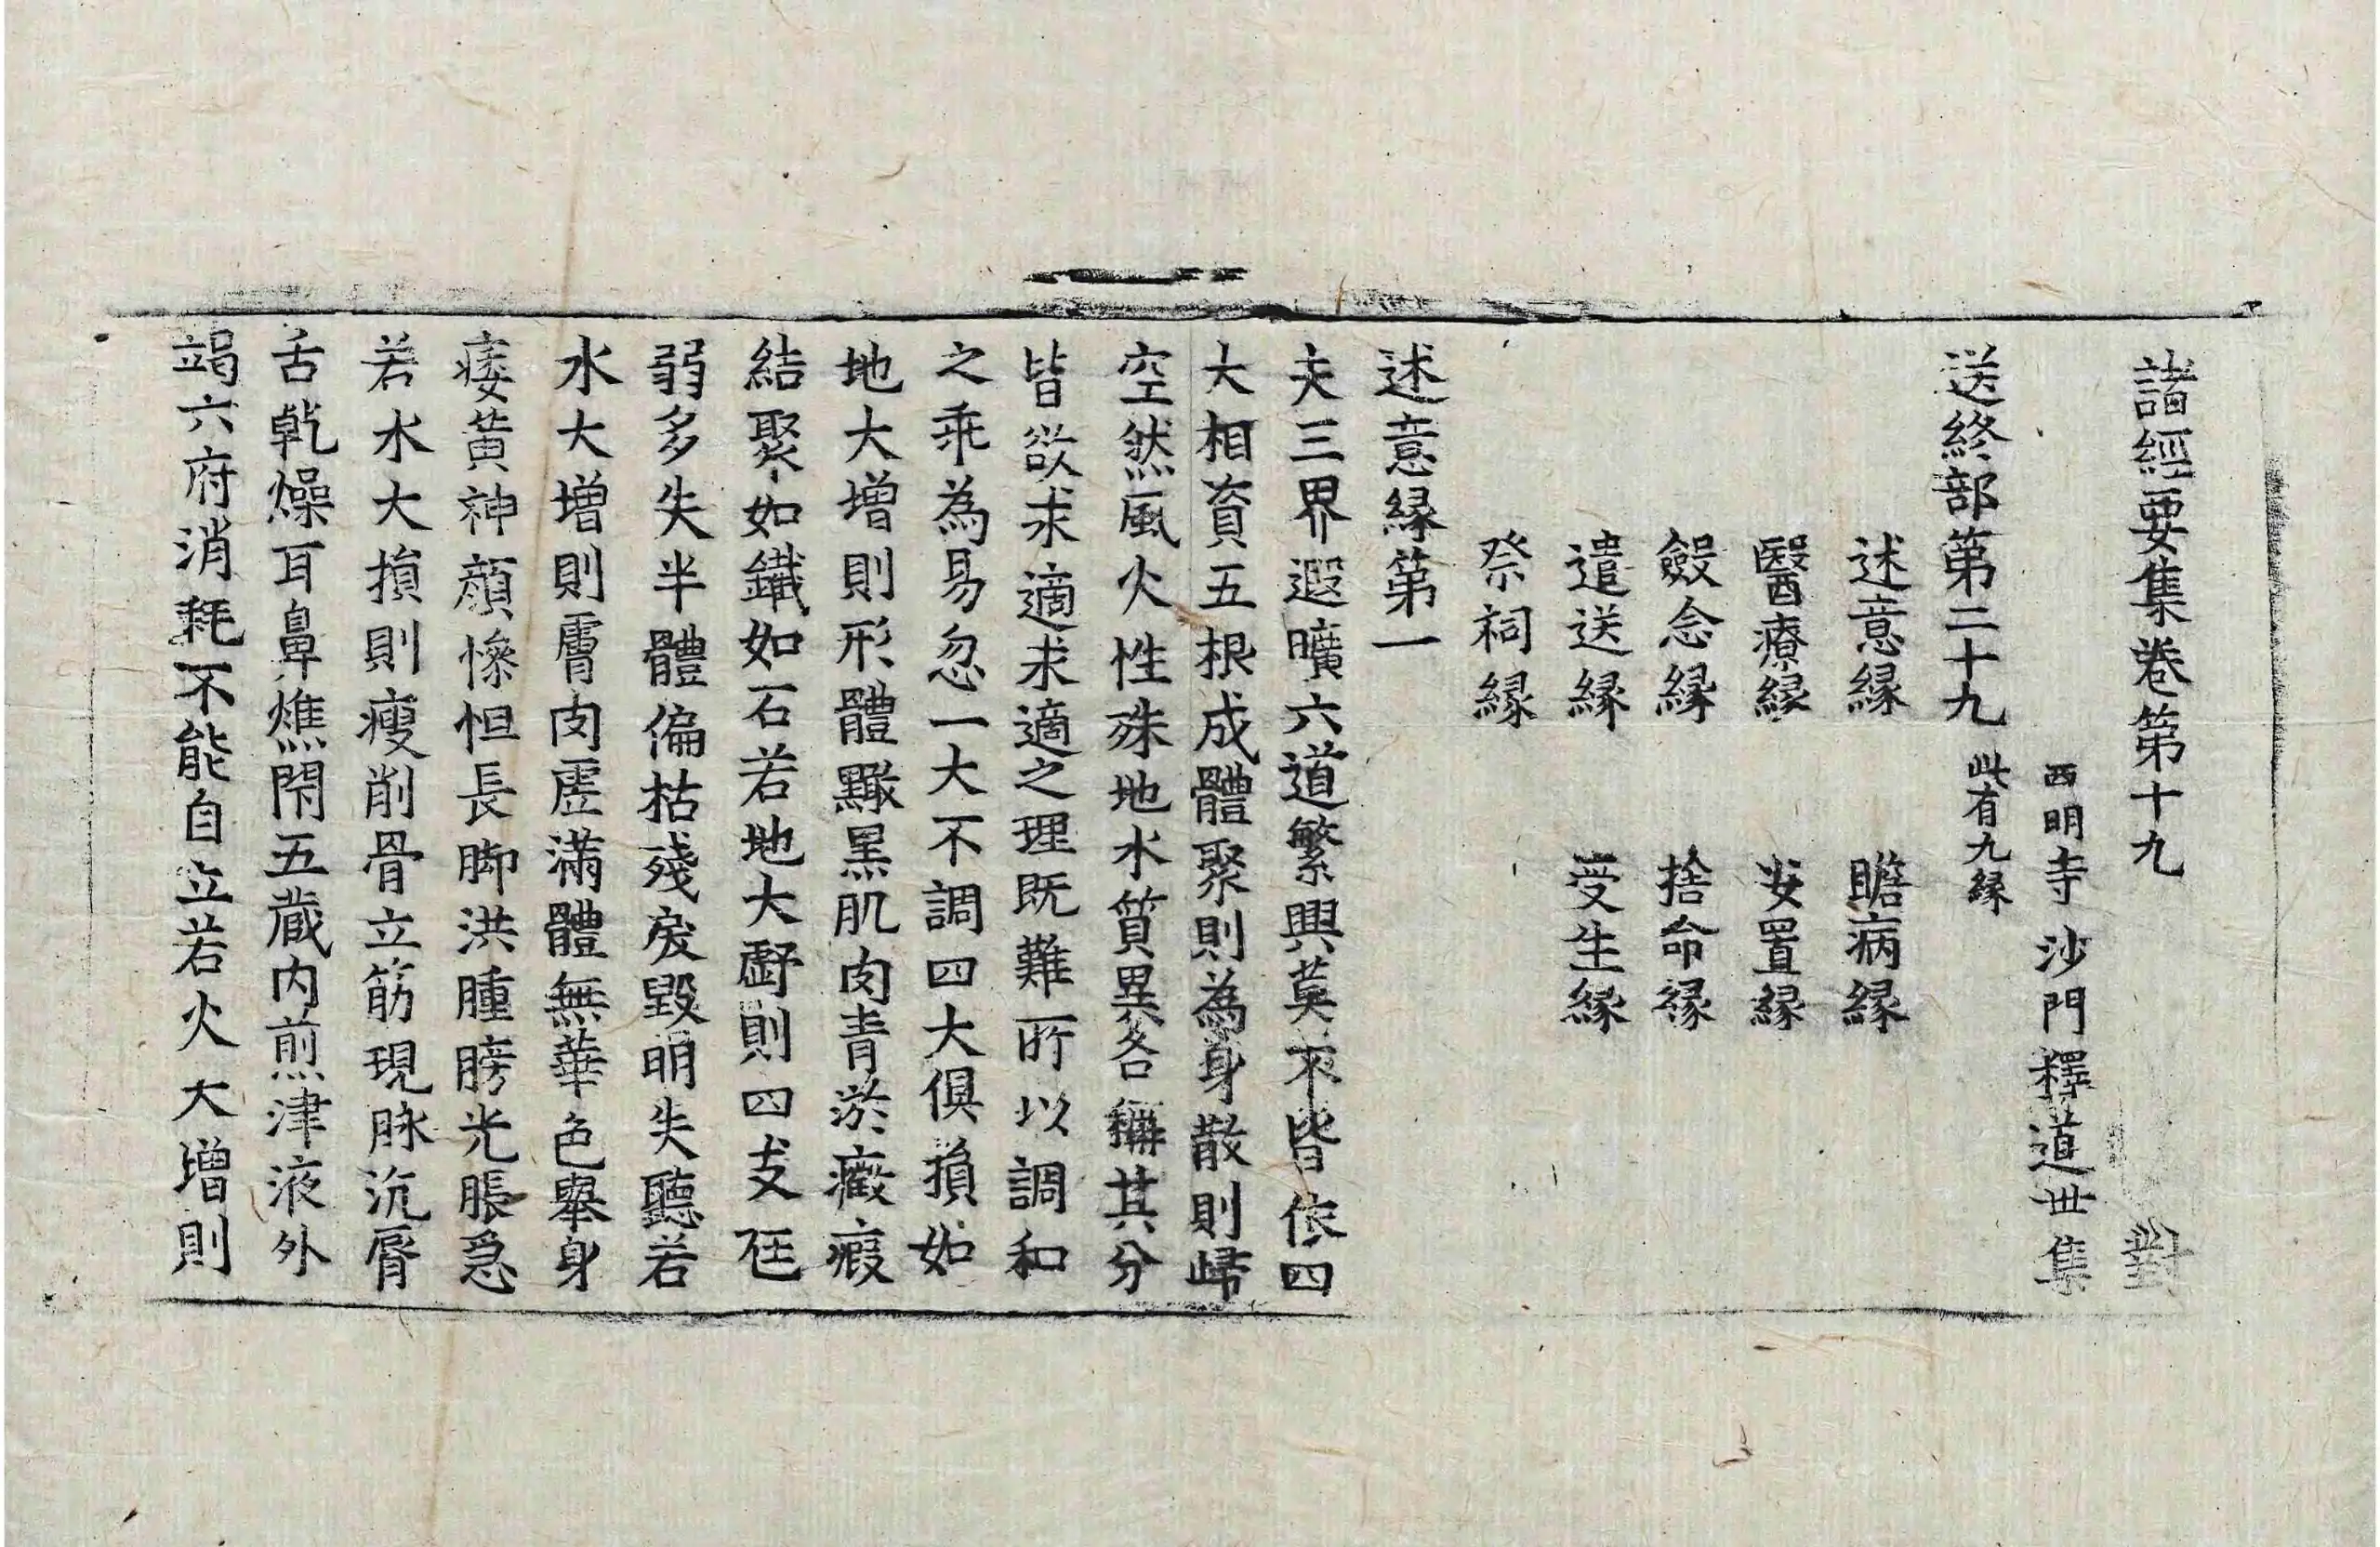 諸經要集卷第十九 對
西明寺沙門釋道世集
送終部第二十九 此有九緣
述意緣 瞻病緣
醫療緣 安置緣
斂念緣 捨命緣
遣送緣 受生緣
祭祠緣
述意緣第一
夫三界遐曠六道繁興莫不皆依四
大相資五根成體聚則為身散則歸
空然風火性殊地水質異各稱其分
皆欲求適求適之理既難所以調和
之乖為易忽一大不調四大俱損如
地大增則形體黮黑肌肉青淤癥瘕
結聚如鐵如石若地大虧則四支尫
弱多失半體偏枯殘戾毀明失聽若
水大增則膚肉虛滿體無華色舉身
痿黃神顏慘怛長脚洪腫膀光脹急
若水大損則瘦削骨立筋現脉沉脣
舌乾燥耳鼻燋閇五藏内煎津液外
竭六府消耗不能自立若火大增則